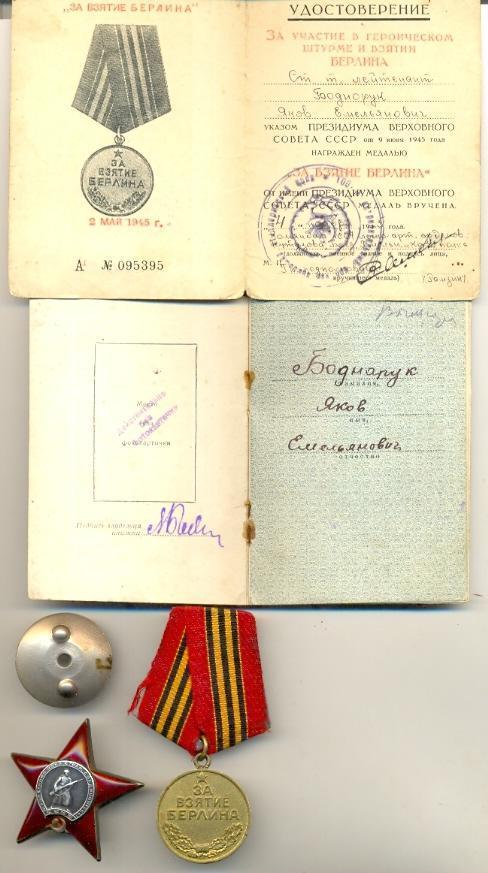 "ЗА ВЗЯТИЕ БЕРЛИНА"
ЗА
ВЗЯТИЕ
БЕРЛИНА
2 МАЯ 1945 г.
А № 095395
УДОСТОВЕРЕНИЕ
ЗА УЧАСТИЕ В ГЕРОИЧЕСКОМ
ШТУРМЕ И ВЗЯТИИ
БЕРЛИНА
Ст. т. лейтенант
Боднарук
Яков Емельянович
УКАЗОМ ПРЕЗИДИУМА ВЕРХОВНОГО
СОВЕТА СССР от 9 июня 1945 года
НАГРАЖДЕН МЕДАЛЬЮ
"ЗА ВЗЯТИЕ БЕРЛИНА"
ОТ ИМЕНИ ПРЕЗИДИУМА ВЕРХОВНОГО
СОВЕТА СССР МЕДАЛЬ ВРУЧЕНА
года.
вручившего медаль)
Место
для
фотокарточки
Действительно
без
фотокарточки
Подпись владельца
книжки
Боднарук
фамилия
Яков
имя
Емельянович
отчество
ЗА
ВЗЯТИЕ
БЕРЛИНА